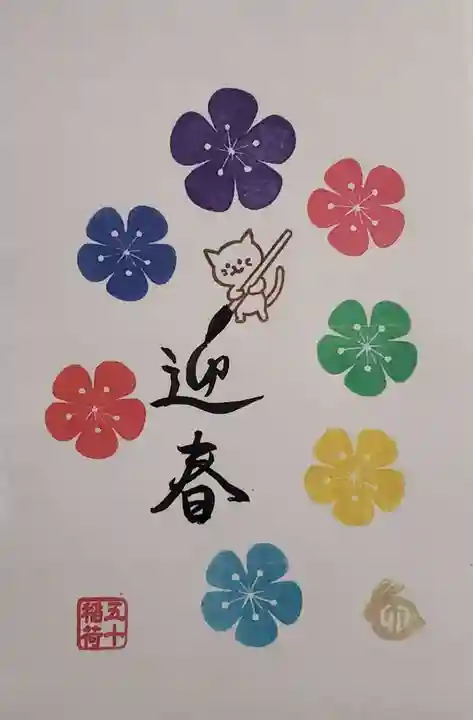 迎春
五十稲荷
卯